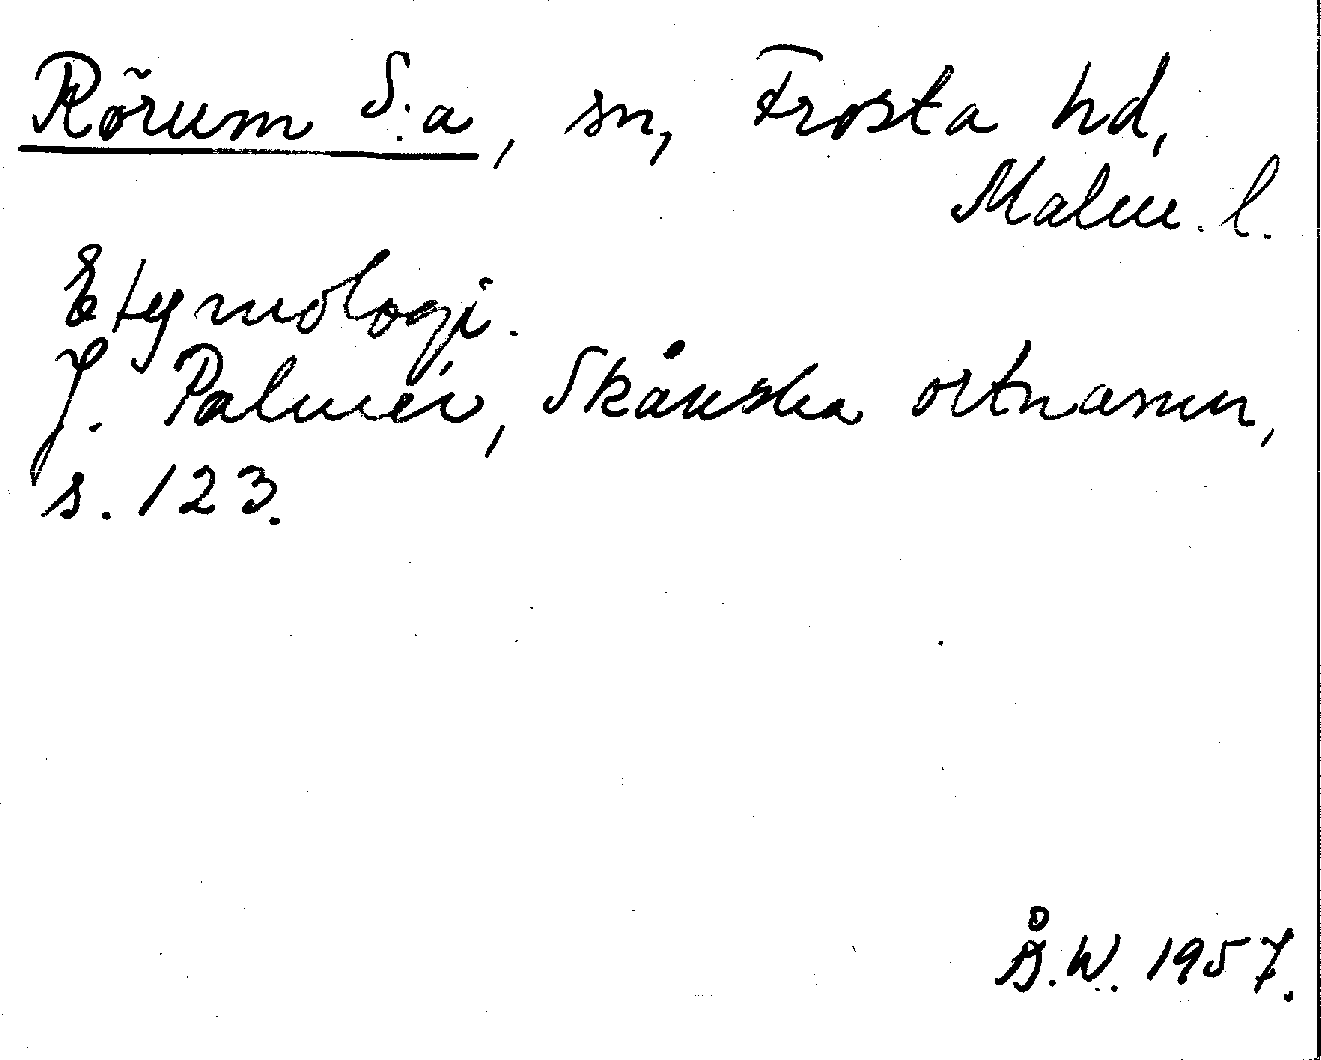 Rörum S:a, sn, Frosta hd,
Malm. l.
Etymologi.
J. Palmér, Skånska ortnamn,
s. 123.
Å.W. 1957.